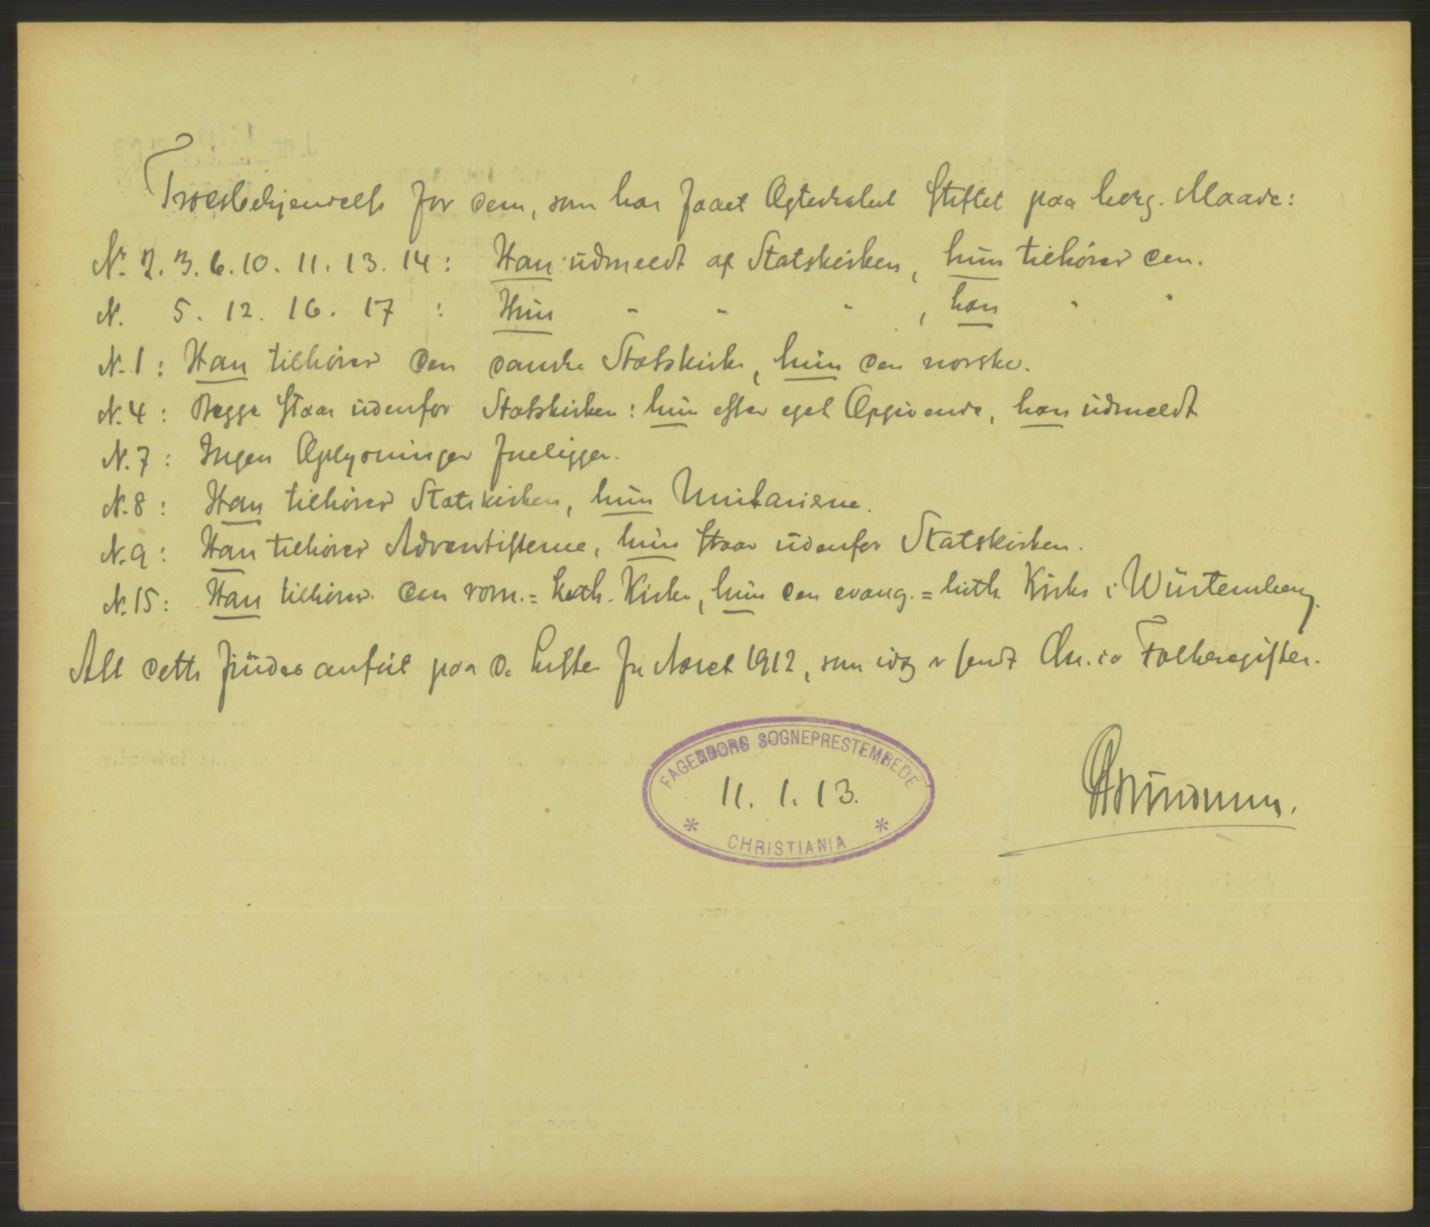 Troesbekjendelse for dem, som har faaet Ægteskabet stiftet paa borg. Maade:
Nr. 2. 3. 6. 10. 11. 13. 14: Han udmeldt af Statskirken, hun tilhører den.
N. 5. 12. 16. 17 : Hun " " " , han " "
N. 1: Han tilhører den danske Statskirke, hun den norske.
N. 4: Begge staar udenfor Statskirken: hun efter eget Opgivende, han udmeldt
N. 7: Ingen Oplysninger foreligger.
N. 8: Han tilhører Statskirken, hun Unitarierne.
N. 9: Han tilhører Adventisterne, hun staar udenfor Statskirken.
N. 15: Han tilhører den rom.=kath. Kirke, hun den evang.=luth. Kirke i Würtemberg.
Alt dette findes anført paa de Lister for Aaret 1912, som idag er sendt Folkeregister.
FAGERBORG SOGNEPRESTEMBEDE
11. 1. 13.
CHRISTIANIA